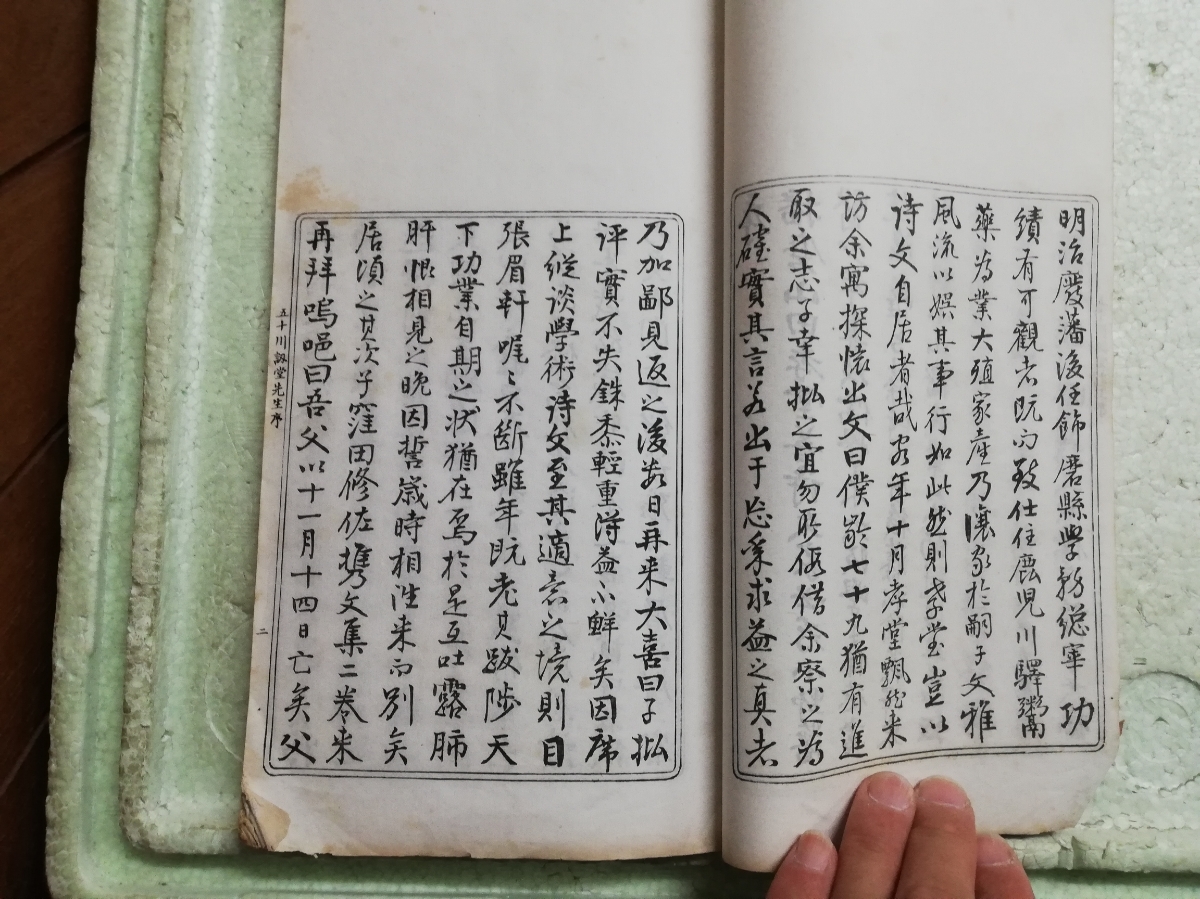 明治廢藩後任飾磨縣學務總寧功
績有可觀者既而致仕住鹿児川驛鬻
藥為業大殖家產乃讓家於嗣子文雅
風流以娯其事行如此然則孝堂豈以
诗文自居者哉客年十月孝堂飄然来
訪余寓探懐出文曰僕齡七十九猶有進
取之志子幸批之宜勿所假借余察之為
人確實其言若出于忘年求益之真者
乃加鄙見返之後数日再来大喜曰子批
評實不失銖黍輕重得益不鮮矣因席
上縱谈學術诗文至其適意之境則目
張眉軒喔〻不斷雖年既老其跋陟天
下功業自期之状猶在焉於是互吐露肺
肝恨相見之晩因誓歲時相往来而別矣
居頃之其次子窪田修佐携文集二巻来
再拜嗚咽曰吾父以十一月十四日亡矣父
五十川訒堂先生序
二